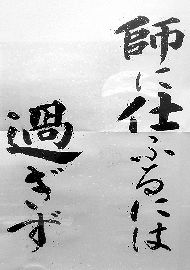 師に仕ふるには
過ぎず